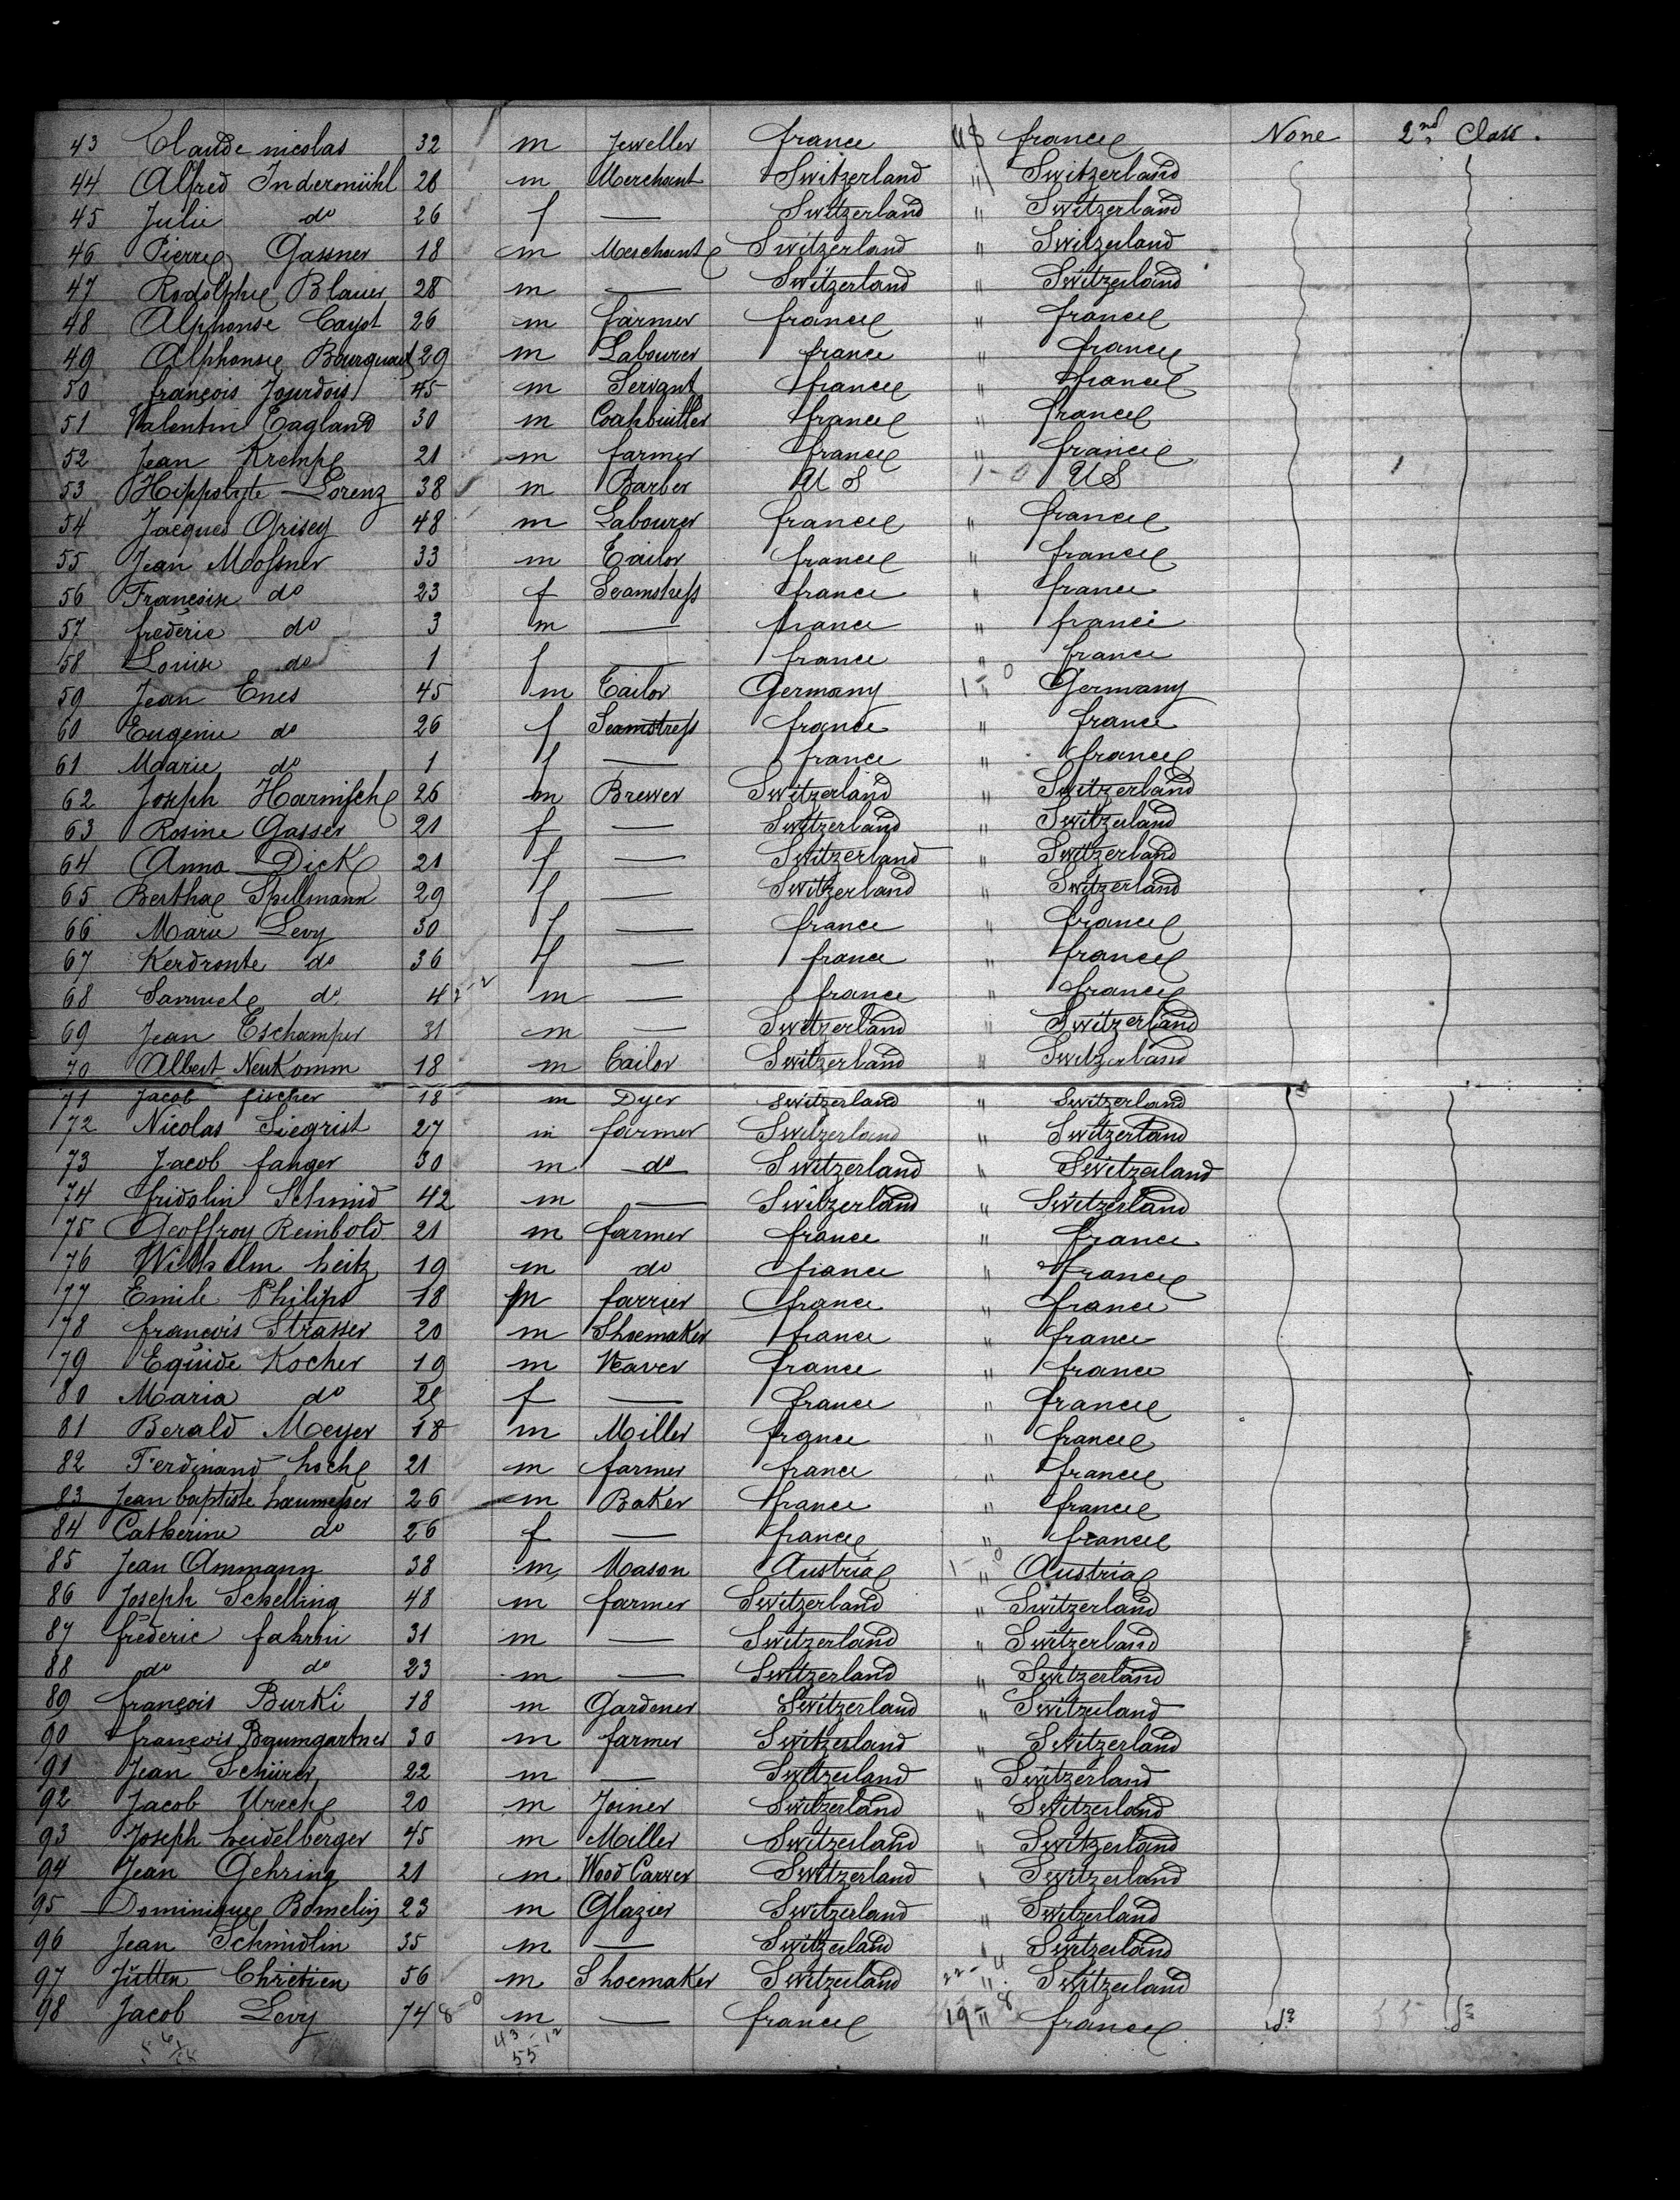 43 Claude nicolas 32 m Jeweller france US france None 2nd Class.
44 Alfred Indermühl 28 m Merchant Switzerland " Switzerland
45 Julie do 26 f — Switzerland " Switzerland
46 Pierre Gassner 18 m Merchant Switzerland " Switzerland
47 Rodolphe Blauer 28 m — Switzerland " Switzerland
48 Alphonse Cayot 26 m farmer france " france
49 Alphonse Bourquard 29 m Labourer france " france
50 françois Jourdois 45 m Servant france " france
51 Valentin Eagland 30 m france " france
52 Jean Kremp 21 m farmer france " france
53 Hippolyte Lorenz 38 m Barber U S 1-0 US
54 Jacques Grisey 48 m Labourer france " france
55 Jean Mossner 33 m Tailor france " france
56 Françoise do 23 f Seamstress france " france
57 frédéric do 3 m — france " france
58 Louise do 1 f — france " france
59 Jean Enes 45 m Tailor Germany 1-0 " Germany
60 Eugenie do 26 f Seamstress france " france
61 Marie do 1 f — france " france
62 Joseph Harnisch 26 m Brewer Switzerland " Switzerland
63 Rosine Gasser 21 f — Switzerland " Switzerland
64 Anna Dick 21 f — Switzerland " Switzerland
65 Bertha Spillmann 29 f — Switzerland " Switzerland
66 Marie Levy 30 f — france " france
67 Kerdronte do 36 f — france " france
68 Samuel do 4 m — france " france
69 Jean Eschamper 31 m — Switzerland " Switzerland
70 Albert Neukomm 18 m Tailor Switzerland " Switzerland
71 Jacob fischer 18 m Dyer Switzerland " Switzerland
72 Nicolas Siegrist 27 m farmer Switzerland " Switzerland
73 Jacob fanger 30 m do Switzerland " Switzerland
74 fridolin Schmid 42 m — Switzerland " Switzerland
75 Geoffroy Reinbold 21 m farmer france " france
76 Wilhelm heitz 19 m do france " france
77 Emile Philips 18 m farrier france " france
78 françois Strasser 20 m Shoemaker france " france
79 Eguide Kocher 19 m Weaver france " france
80 Maria do f — france " france
81 Berald Meyer 18 m Miller france " france
82 Ferdinand hoch 21 m farmer france " france
83 Jean baptiste haumesser 26 m Baker france " france
84 Catherine do 26 f — france " france
85 Jean Ammann 38 m Mason Austria 1-0 " Austria
86 Joseph Schelling 48 m farmer Switzerland " Switzerland
87 fréderic fahrni 31 m — Switzerland " Switzerland
88 do do 23 m — Switzerland " Switzerland
89 françois Burki 18 m Gardener Switzerland " Switzerland
90 françois Baumgartner 30 m farmer Switzerland " Switzerland
91 Jean Schürer 22 m — Switzerland " Switzerland
92 Jacob Urech 20 m Joiner Switzerland " Switzerland
93 Joseph heidelberger 45 m Miller Switzerland " Switzerland
94 Jean Gehring 21 m Wood Carver Switzerland " Switzerland
95 Dominique Bomelin 23 m Glazier Switzerland " Switzerland
96 Jean Schmidlin 35 m — Switzerland " Switzerland
97 Jütten Chrétien 56 m Shoemaker Switzerland 22-4 " Switzerland
98 Jacob Levy 74 8-0 m — france 19-8 " france do do
43-12
55